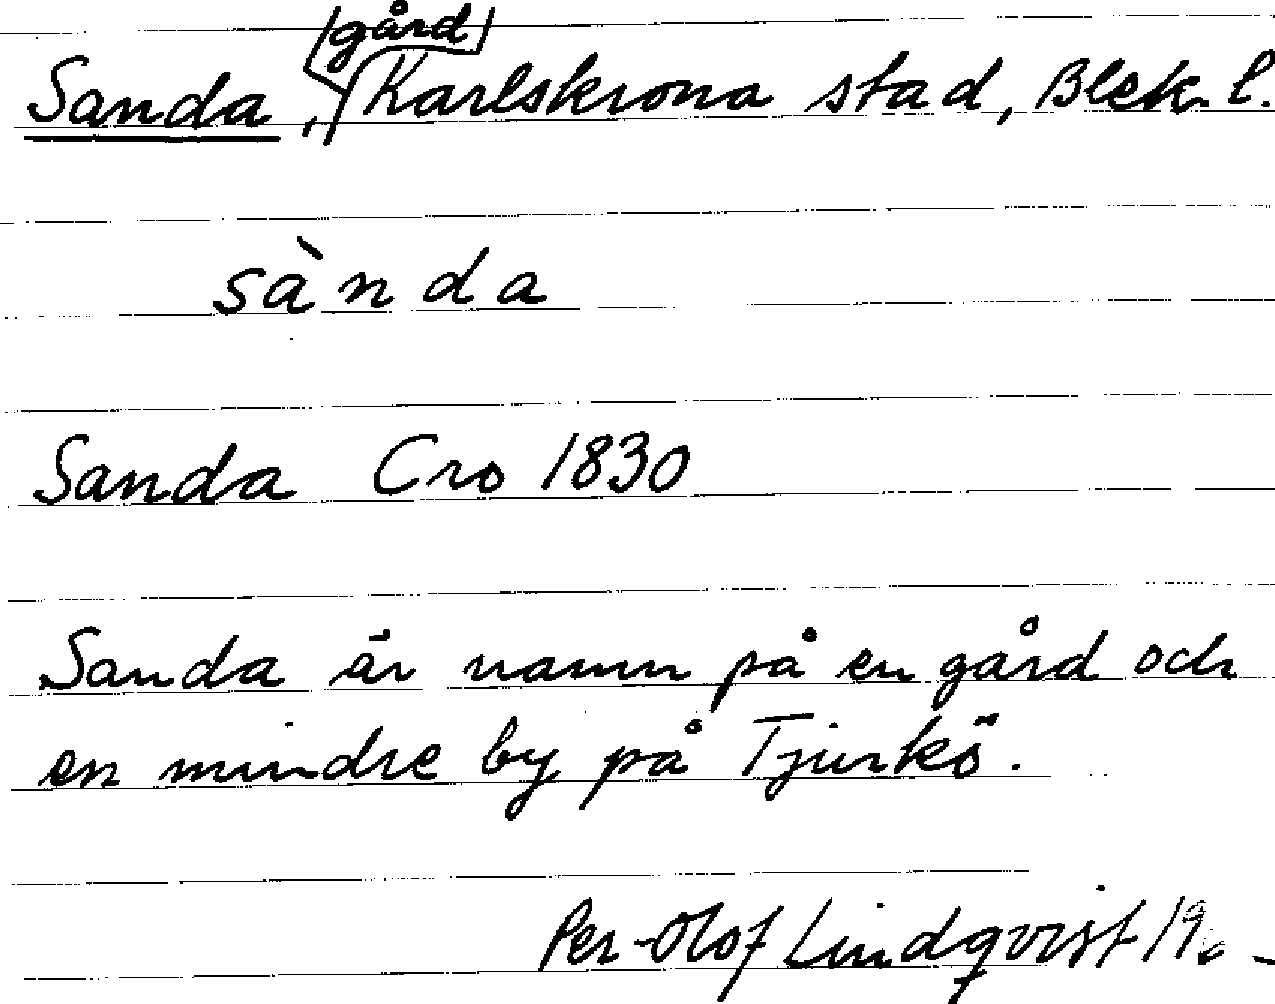 Sanda, /gård/ Karlskrona stad, Blek. l.
sànda
Sanda Cro 1830
Sanda är namn på en gård och
en mindre by på Tjurkö.
Per-Olof Lindqvist